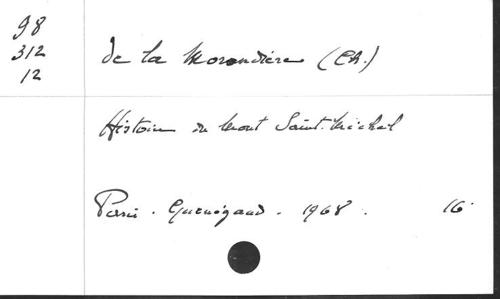 98
312
12
de la Morandière (Ch.)
Histoire du Mont Saint-Michel
Paris. Guénégaud. 1968. 16